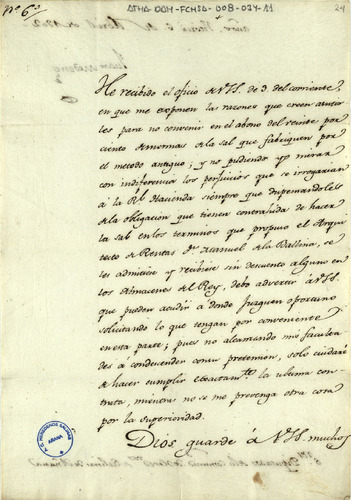 ATHA-DAH-FCHSA-008-034-11
24
nº 6.º
He recibido el oficio de V.SS. de 3 del corriente,
en que me exponen las razones que creen asistir
les para no convenir en el abono del veinte por
ciento de mermas de la sal que fabriquen por
el metodo antiguo; y no pudiendo yo mirar
con indiferencia los perjuicios que se irrogarian
á la Rl Hacienda siempre que dispensandoles
de la obligacion que tienen contrahida de hacer
la sal en los terminos que propuso el Arqui
tecto de Rentas Dn Manuel de la Ballina, se
les admitiese y recibiese sin descuento alguno en
los Almacenes del Rey, debo advertir á V.SS.
que pueden acudir á donde juzguen oportuno
solicitando lo que tengan por conveniente
en esta parte; pues no alcanzando mis faculta
des á condescender con su pretension, solo cuidaré
de hacer cumplir exactamte la ultima con
trata, mientras no se me prevenga otra cosa
por la superioridad.
Dios guarde á V.SS. muchos